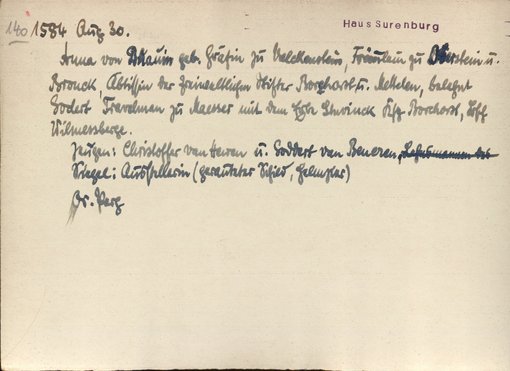 140 1584 Aug 30.
Haus Surenburg
Anna von geb. Gräfin zu Valckenstein, Fräulein zu Oberstein u.
Bronck, Äbtissin der freiweltlichen Stifter Borghorst u. Metelen, belehnt
Godert Travelman zu Maeser mit dem Erbe Elwinck Ksp. Borchorst, Bff.
Wilmersberge.
Zeugen: Christoffer van Heven u. Goddert van Beveren, Lehnsmannen des
Siegel: Ausstellerin (gerauteter Schild, Helmzier)
Or. Perg